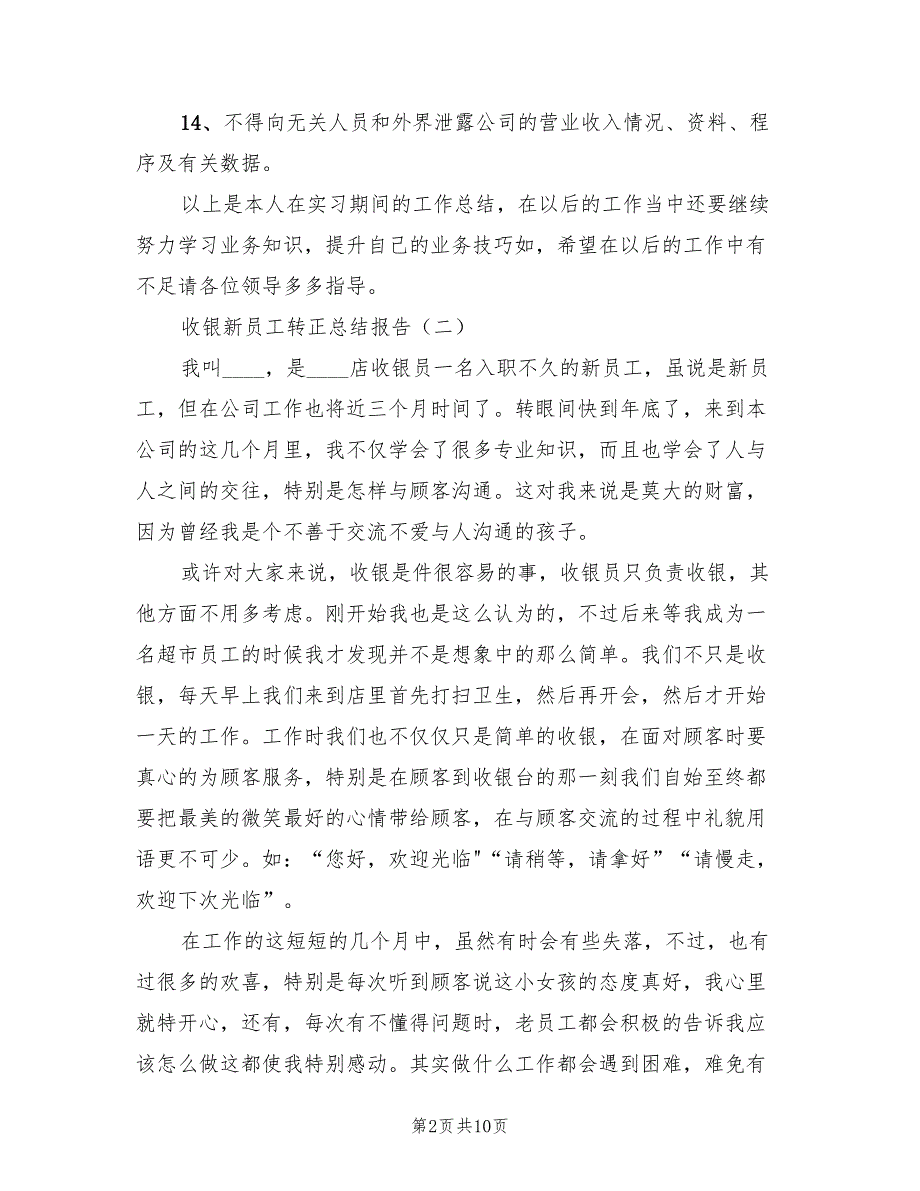 14、不得向无关人员和外界泄露公司的营业收入情况、资料、程
序及有关数据。
以上是本人在实习期间的工作总结，在以后的工作当中还要继续
努力学习业务知识，提升自己的业务技巧如，希望在以后的工作中有
不足请各位领导多多指导。
收银新员工转正总结报告（二）
我叫____，是____店收银员一名入职不久的新员工，虽说是新员
工，但在公司工作也将近三个月时间了。转眼间快到年底了，来到本
公司的这几个月里，我不仅学会了很多专业知识，而且也学会了人与
人之间的交往，特别是怎样与顾客沟通。这对我来说是莫大的财富，
因为曾经我是个不善于交流不爱与人沟通的孩子。
或许对大家来说，收银是件很容易的事，收银员只负责收银，其
他方面不用多考虑。刚开始我也是这么认为的，不过后来等我成为一
名超市员工的时候我才发现并不是想象中的那么简单。我们不只是收
银，每天早上我们来到店里首先打扫卫生，然后再开会，然后才开始
一天的工作。工作时我们也不仅仅只是简单的收银，在面对顾客时要
真心的为顾客服务，特别是在顾客到收银台的那一刻我们自始至终都
要把最美的微笑最好的心情带给顾客，在与顾客交流的过程中礼貌用
语更不可少。如：“您好，欢迎光临"“请稍等，请拿好”“请慢走，
欢迎下次光临”。
在工作的这短短的几个月中，虽然有时会有些失落，不过，也有
过很多的欢喜，特别是每次听到顾客说这小女孩的态度真好，我心里
就特开心，还有，每次有不懂得问题时，老员工都会积极的告诉我应
该怎么做这都使我特别感动。其实做什么工作都会遇到困难，难免有
第2页共10页